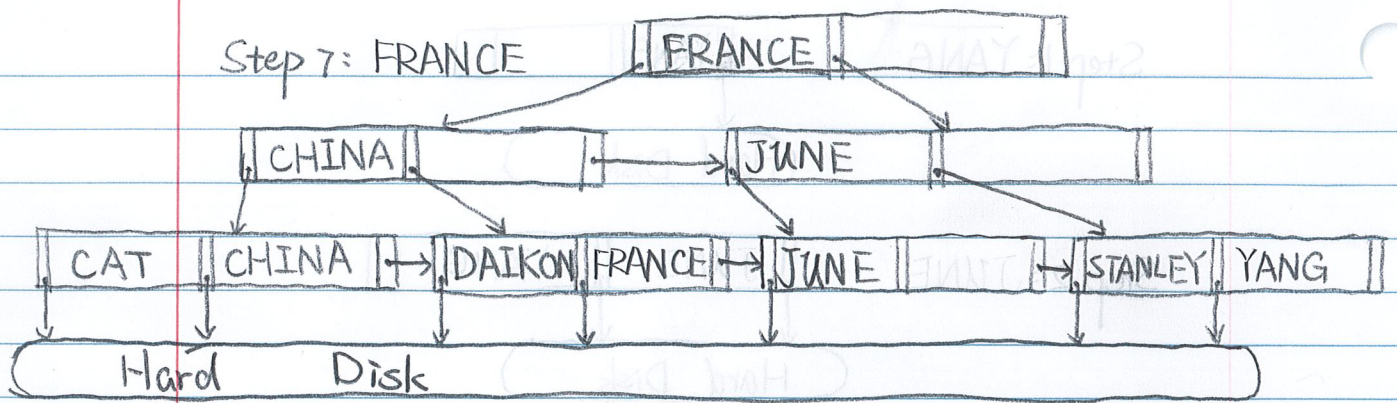 Step 7: FRANCE
FRANCE
CHINA
JUNE
CAT CHINA DAIKON FRANCE JUNE STANLEY YANG
Hard Disk